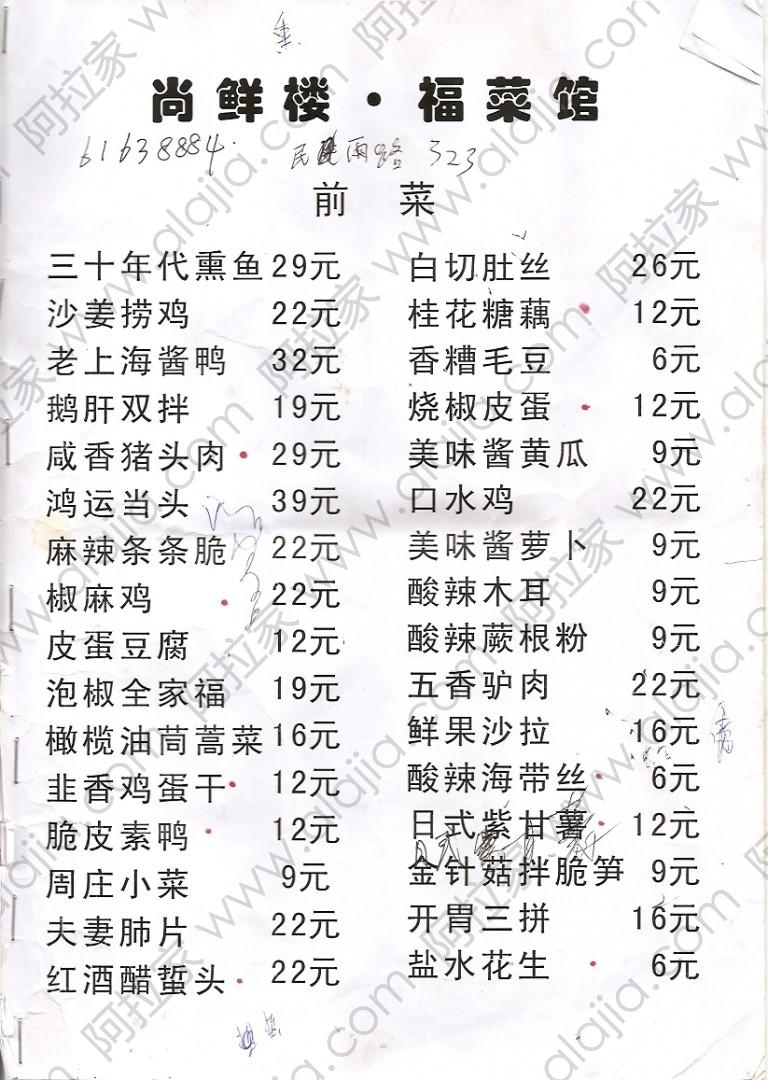 尚鲜楼·福菜馆
61638884. 民 雨路 323
前 菜
三十年代熏鱼 29元 白切肚丝 26元
沙姜捞鸡 22元 桂花糖藕 12元
老上海酱鸭 32元 香糟毛豆 6元
鹅肝双拌 19元 烧椒皮蛋 12元
咸香猪头肉 29元 美味酱黄瓜 9元
鸿运当头 39元 口水鸡 22元
麻辣条条脆 22元 美味酱萝卜 9元
椒麻鸡 22元 酸辣木耳 9元
皮蛋豆腐 12元 酸辣蕨根粉 9元
泡椒全家福 19元 五香驴肉 22元
橄榄油茼蒿菜 16元 鲜果沙拉 16元
韭香鸡蛋干 12元 酸辣海带丝 6元
脆皮素鸭 12元 日式紫甘薯 12元
周庄小菜 9元 金针菇拌脆笋 9元
夫妻肺片 22元 开胃三拼 16元
红酒醋蜇头 22元 盐水花生 6元
阿拉家 www.alajia.com